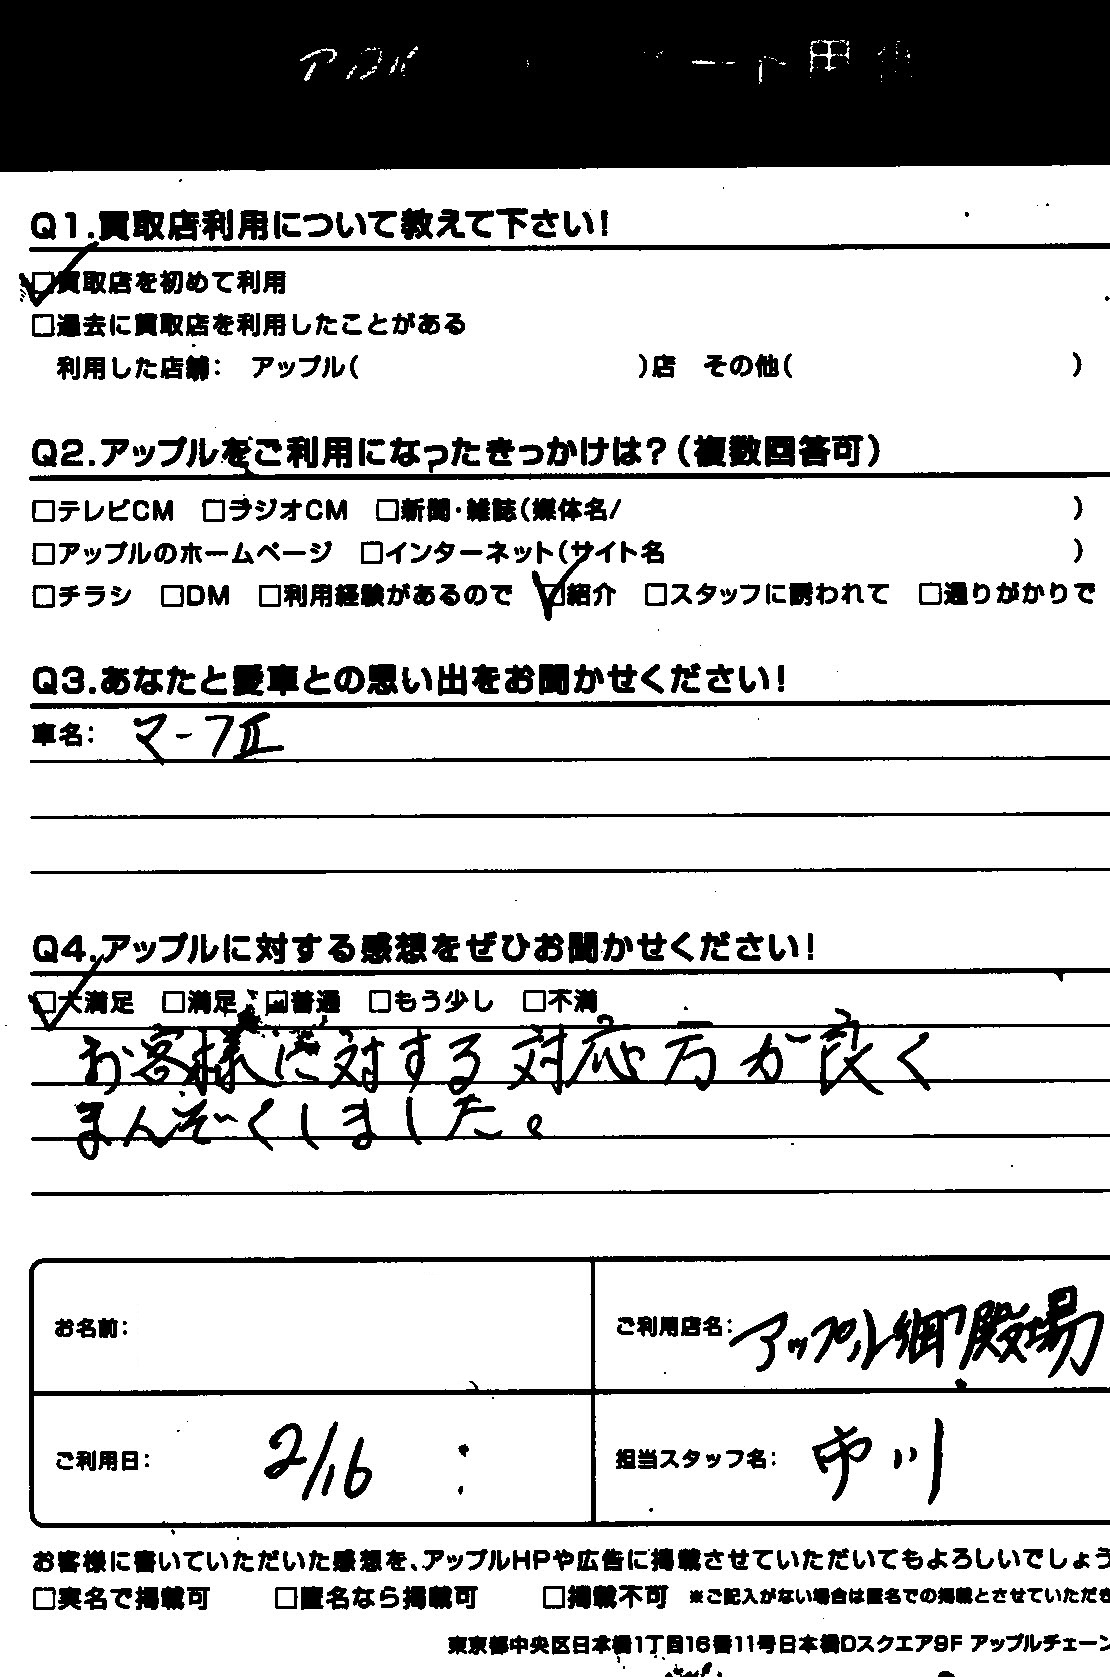 Q1.買取店利用について教えて下さい!
☑買取店を初めて利用
□過去に買取店を利用したことがある
利用した店舗: アップル( )店 その他( )
Q2.アップルをご利用になったきっかけは?(複数回答可)
□テレビCM □ラジオCM □新聞・雑誌(媒体名/ )
□アップルのホームページ □インターネット(サイト名 )
□チラシ □DM □利用経験があるので ☑紹介 □スタッフに誘われて □通りがかりで
Q3.あなたと愛車との思い出をお聞かせください!
車名: マークⅡ
Q4.アップルに対する感想をぜひお聞かせください!
☑大満足 □満足 □普通 □もう少し □不満
お客様に対する対応方が良く
まんぞくしました。
お名前:
ご利用店名: アップル御殿場
ご利用日: 2/16
担当スタッフ名: 市川
お客様に書いていただいた感想を、アップルHPや広告に掲載させていただいてもよろしいでしょう
□実名で掲載可 □匿名なら掲載可 □掲載不可 ※ご記入がない場合は匿名での掲載とさせていただき
東京都中央区日本橋1丁目16番11号日本橋Dスクエア9F アップルチェーン